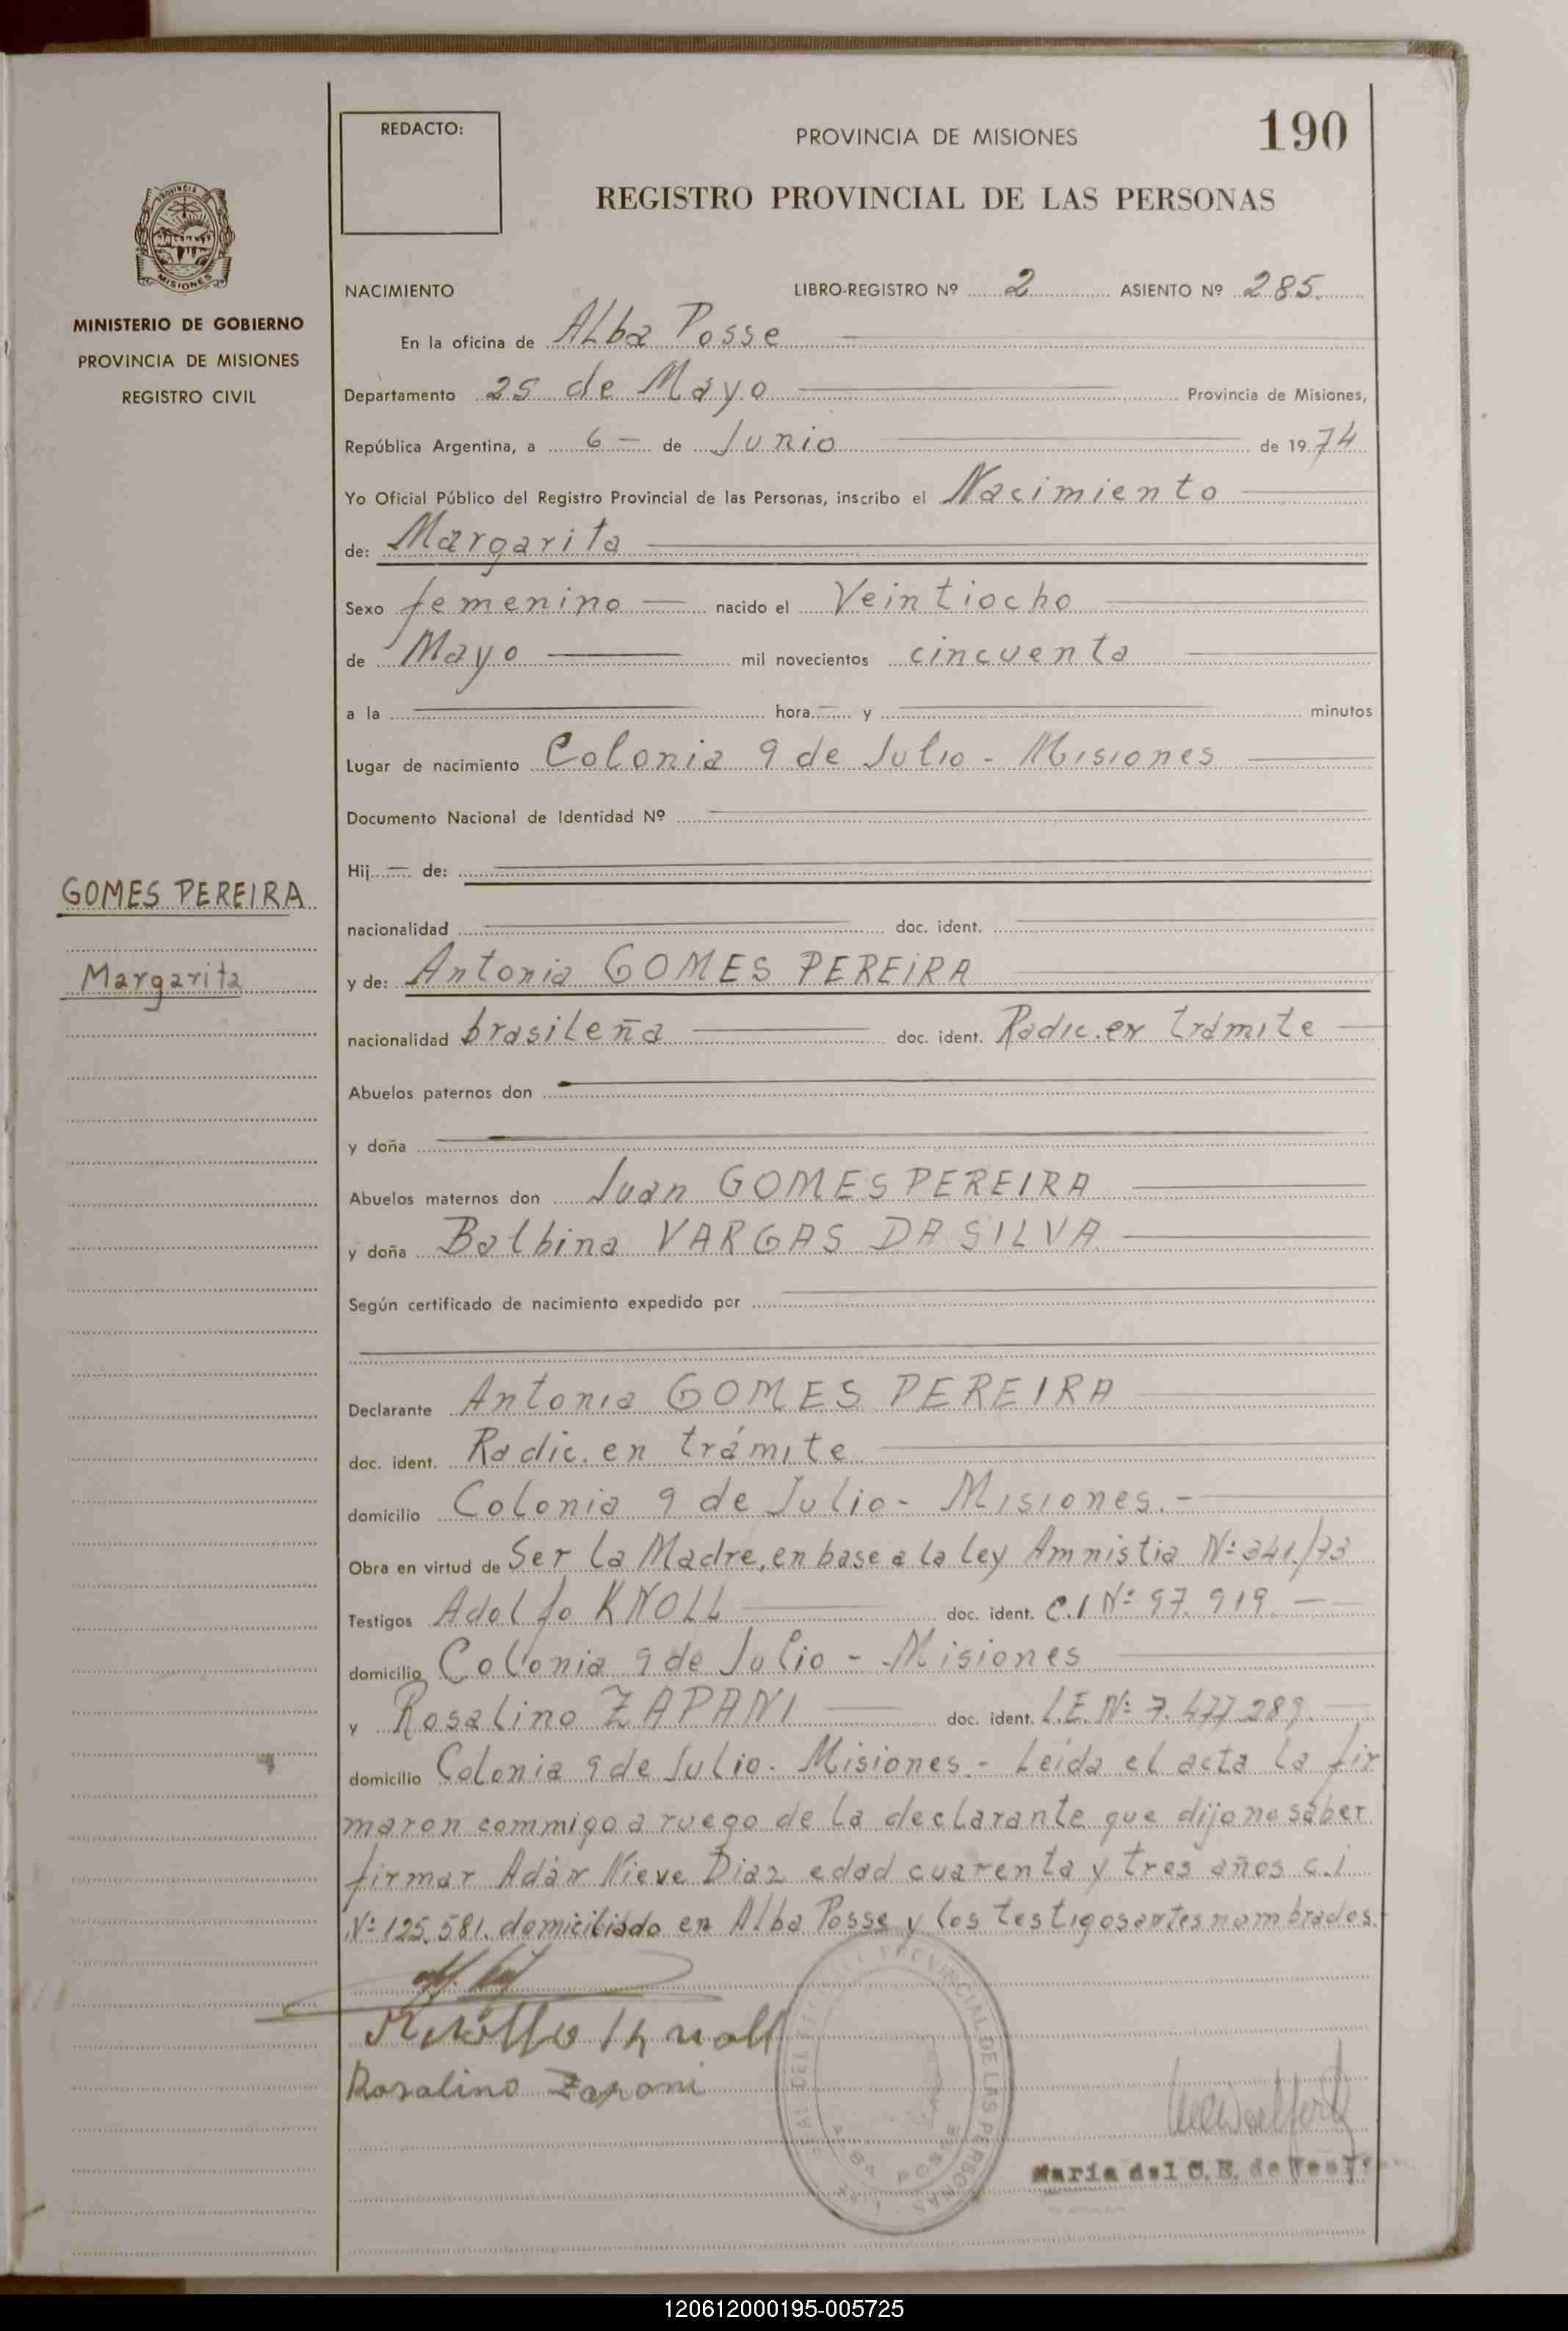 REDACTO:
PROVINCIA DE MISIONES
190
REGISTRO PROVINCIAL DE LAS PERSONAS
PROVINCIA
MISIONES
MINISTERIO DE GOBIERNO
PROVINCIA DE MISIONES
REGISTRO CIVIL
NACIMIENTO LIBRO-REGISTRO Nº 2 ASIENTO Nº 285.
En la oficina de Alba Posse
Departamento 25 de Mayo Provincia de Misiones,
República Argentina, a 6 de Junio de 1974
Yo Oficial Público del Registro Provincial de las Personas, inscribo el Nacimiento
de: Margarita
Sexo femenino nacido el Veintiocho
de Mayo mil novecientos cincuenta
a la hora y minutos
Lugar de nacimiento Colonia 9 de Julio - Misiones
Documento Nacional de Identidad Nº
Hij de:
GOMES PEREIRA
nacionalidad doc. ident.
Margarita
y de: Antonia GOMES PEREIRA
nacionalidad brasileña doc. ident. Radic. en trámite
Abuelos paternos don
y doña
Abuelos maternos don Juan GOMES PEREIRA
y doña Balbina VARGAS DA SILVA
Según certificado de nacimiento expedido por
Declarante Antonia GOMES PEREIRA
doc. ident. Radic. en trámite
domicilio Colonia 9 de Julio - Misiones. -
Obra en virtud de Ser la Madre, en base a la ley Amnistia Nº 341/73
Testigos Adolfo KNOLL doc. ident. C.I Nº 97.919
domicilio Colonia 9 de Julio - Misiones
y Rosalino ZAPANI doc. ident. L.E. Nº 7.477.289.
domicilio Colonia 9 de Julio. Misiones. - Leída el acta la fir
maron commigo a ruego de la declarante que dijo no saber
firmar Adán Nieve Diaz edad cuarenta y tres años c.i
Nº 125.581. domiciliado en Alba Posse y los testigos antes nombrados.
Knoll
Rosalino Zapani
PROVINCIAL DE LAS PERSONAS
ALBA POSSE
María del C. E. de
120612000195-005725